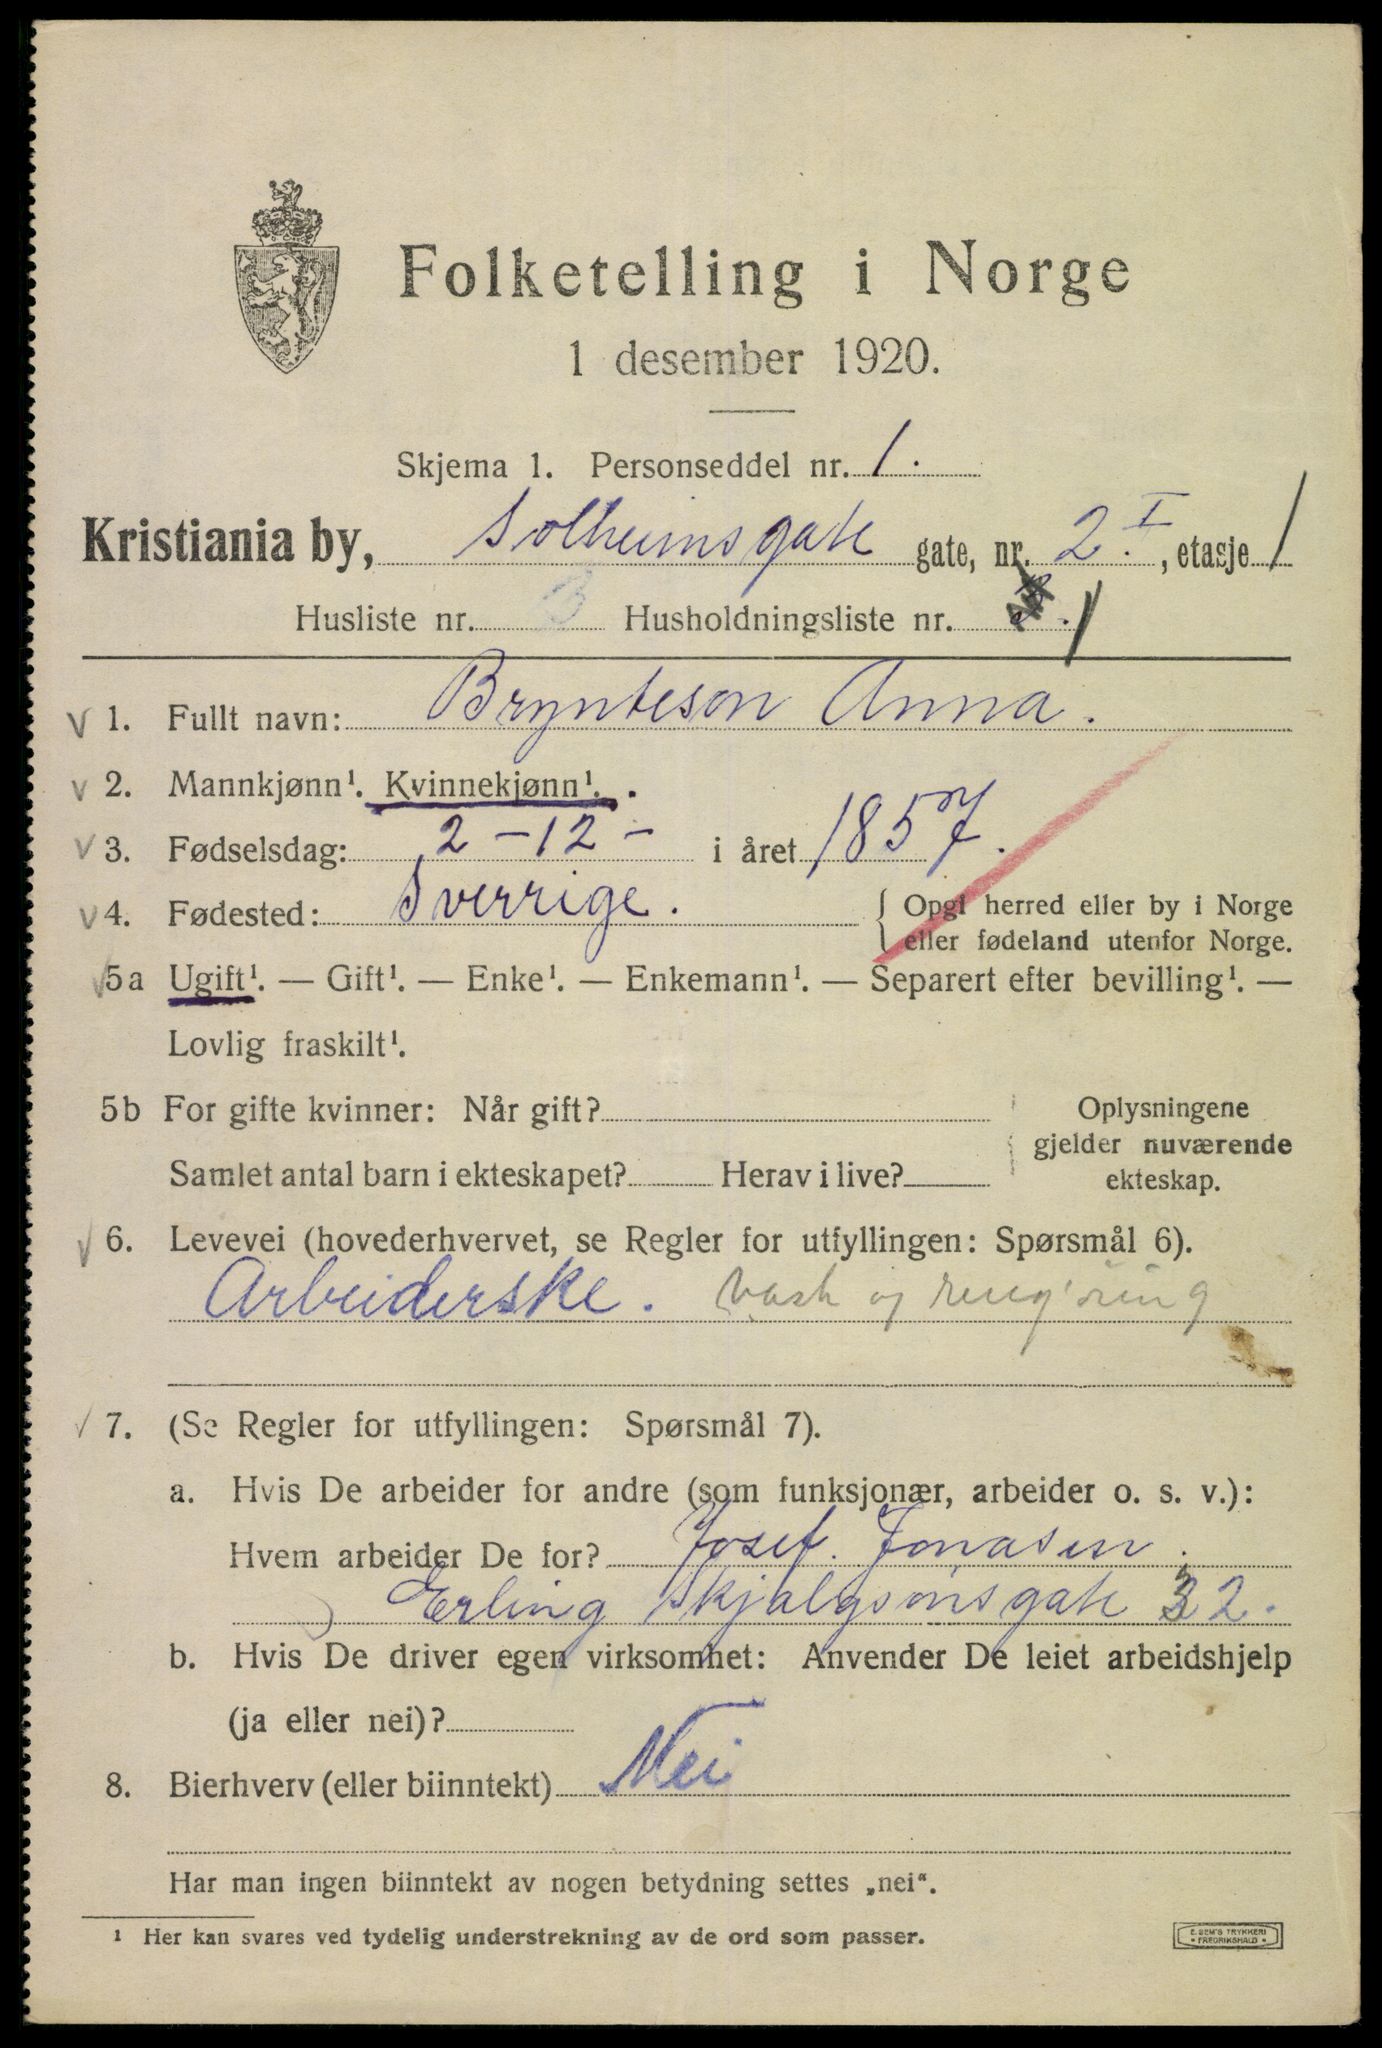 Folketelling i Norge
1 desember 1920.
Skjema 1. Personseddel nr. 1.
Kristiania by, Solheimsgate gate, nr. 2 I, etasje 1
Husliste nr. 3 Husholdningsliste nr. 1
v 1. Fullt navn: Brynteson Anna.
v 2. Mannkjønn¹. Kvinnekjønn¹.
v 3. Fødselsdag: 2 - 12 - i året 1857.
v 4. Fødested: Sverrige. { Opgi herred eller by i Norge
eller fødeland utenfor Norge.
v 5a Ugift¹. — Gift¹. — Enke¹. — Enkemann¹. — Separert efter bevilling¹. —
Lovlig fraskilt¹.
5b For gifte kvinner: Når gift? Oplysningene
gjelder nuværende
Samlet antal barn i ekteskapet? Herav i live? ekteskap.
v 6. Levevei (hovederhvervet, se Regler for utfyllingen: Spørsmål 6).
Arbeiderske. Vask og rengjøring
v 7. (Se Regler for utfyllingen: Spørsmål 7).
a. Hvis De arbeider for andre (som funksjonær, arbeider o. s. v.):
Hvem arbeider De for? Josef. Jonasen.
Erling Skjalgsønsgate 32.
b. Hvis De driver egen virksomhet: Anvender De leiet arbeidshjelp
(ja eller nei)?
8. Bierhverv (eller biinntekt) Nei
Har man ingen biinntekt av nogen betydning settes „nei“.
¹ Her kan svares ved tydelig understrekning av de ord som passer.
E. SEM'S TRYKKERI
• FREDRIKSHALD •